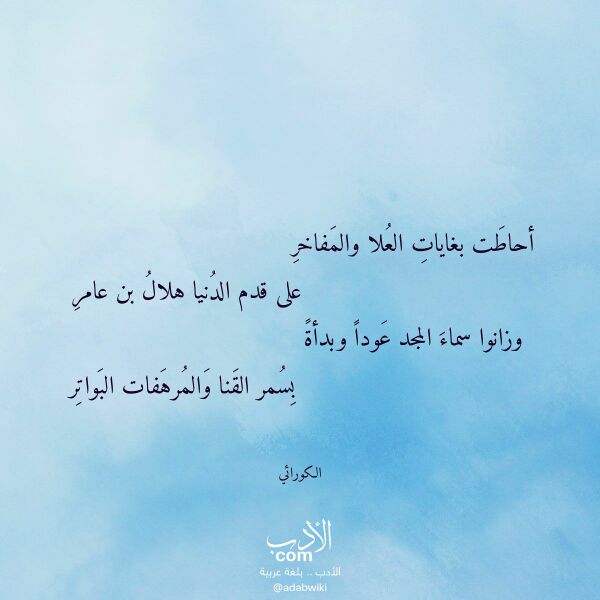 أحاطَت بغاياتِ العُلا والمَفاخرِ
على قدم الدُنيا هلالُ بن عامرِ
وزانوا سماءَ المجد عَوداً وبدأةً
بِسُمر القَنا وَالمُرهَفات البَواتِر
الكورائي
الأدب
com
الأدب .. بلغة عربية
@adabwiki